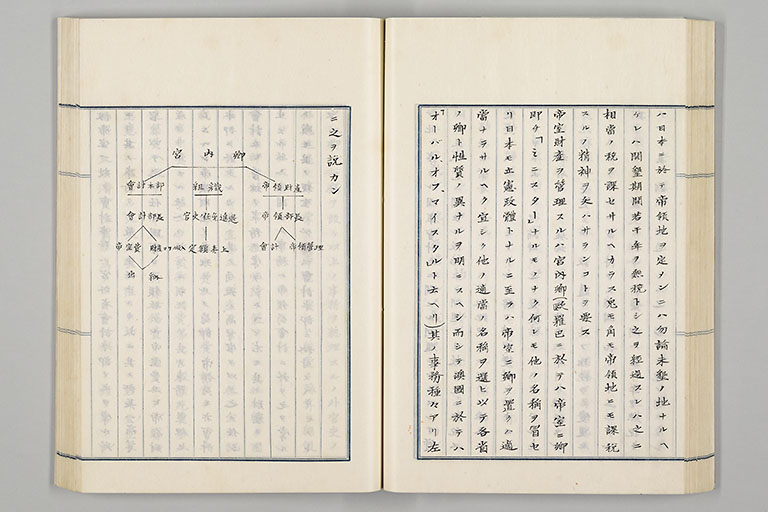 ハ日本ニ於テ帝領地ヲ定メンニハ勿論未墾ノ地ナルヘ
ケレハ開墾期間若干年ヲ無税トシ之ヲ経過スレハ之ニ
相當ノ税ヲ課セサルヘカラス兎モ角モ帝領地ニモ課税
スルノ精神ヲ失ハサランコトヲ要ス
帝室財産ヲ管理スルハ宮内卿(歐羅巴ニ於テハ帝室ニ卿
即チ「ミニスター」ナルモノナク何レモ他ノ名稱ヲ冒セ
リ日本モ立憲政體トナルニ至ラハ帝室ニ卿ヲ置クハ適
當ナラサルヘク宜シク他ノ適當ノ名稱ヲ選ヒ以テ各省
ノ卿ト性質ノ異ナルヲ期ニスヘシ而シテ澳國ニ於テハ
「オーバルオフマイスタル」ト云ヘリ)其ノ事務種々アリ左
ニ之ヲ説カン
宮内卿
帝領財産
帝領部長
帝領管理
會計
會計本部
會計部長
帝室費
出納